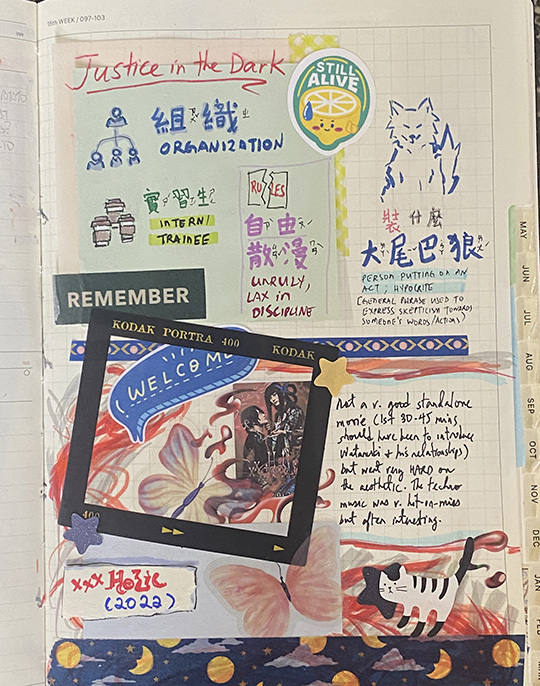 15th WEEK / 097-103
Justice in the Dark
STILL
ALIVE
組織
ORGANIZATION
實習生
INTERN/
TRAINEE
RULES
自由
散漫
UNRULY,
LAX in
DISCIPLINE
裝什麼
大尾巴狼
PERSON PUTTING ON AN
ACT; HYPOCRITE
(GENERAL PHRASE USED TO
EXPRESS SKEPTICISM TOWARDS
SOMEONE'S WORDS/ACTIONS)
REMEMBER
KODAK PORTRA 400 KODAK
WELCOME
400
Not a v. good standalone
movie (1st 30-45 mins
should have been to introduce
Watanuki + his relationships)
but went very HARD on
the aesthetic. The techno
music was v. hit-in-miss
but often interesting.
xxxHolic
(2022)
MAY
JUN
JUL
AUG
SEP
OCT
NOV
DEC
JAN
FEB